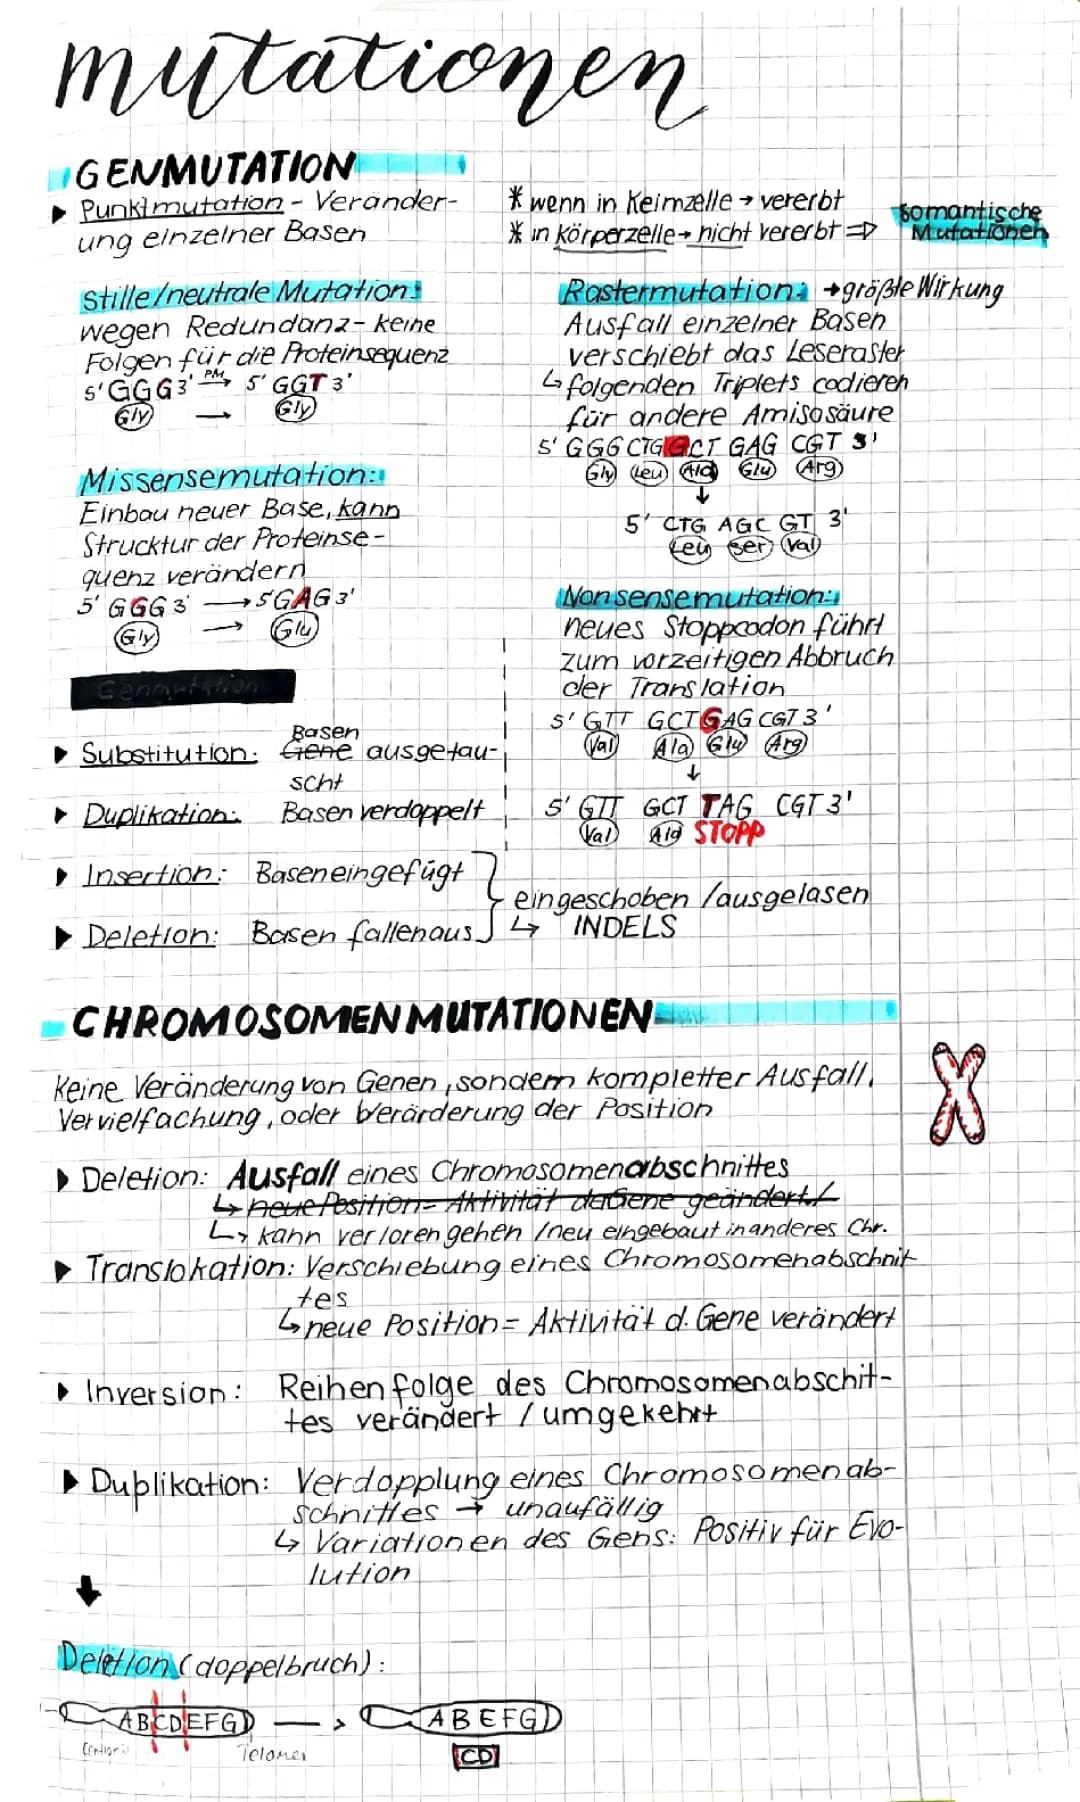 mutationen
GENMUTATION
▶ Punktmutation - Veränder-
ung einzelner Basen
* wenn in Keimzelle → vererbt
* in körperzelle → nicht vererbt ⇒
Somantische
Mutationen
Stille/neutrale Mutation:
wegen Redundanz - keine
Folgen für die Proteinsequenz
5' GGG 3' PM→ 5' GGT 3'
Gly → Gly
Missensemutation:
Einbau neuer Base, kann
Strucktur der Proteinse-
quenz verändern
5' GGG 3' → 5' GAG 3'
Gly → Glu
Rastermutation: → größte Wirkung
Ausfall einzelner Basen
verschiebt das Leseraster
↳ folgenden Triplets codieren
für andere Amisosäure
5' GGG CTG GCT GAG CGT 3'
Gly Leu Ala Glu Arg
↓
5' CTG AGC GT 3'
Leu Ser Val
Nonsensemutation:
neues Stoppcodon führt
zum vorzeitigen Abbruch
der Translation
5' GTT GCT GAG CGT 3'
Val Ala Glu Arg
↓
5' GTT GCT TAG CGT 3'
Val Ala STOPP
Genmutation
▶ Substitution: Gene Basen ausgetau-
scht
▶ Duplikation: Basen verdoppelt
▶ Insertion: Basen eingefügt
▶ Deletion: Basen fallen aus
eingeschoben / ausgelasen
↳ INDELS
CHROMOSOMENMUTATIONEN
Keine Veränderung von Genen, sondern kompletter Ausfall,
Vervielfachung, oder Verärderung der Position
▶ Deletion: Ausfall eines Chromosomenabschnittes
↳ neue Position = Aktivität da Gene geändert
↳ kann verloren gehen / neu eingebaut in anderes Chr.
▶ Translokation: Verschiebung eines Chromosomenabschnit
tes
↳ neue Position = Aktivität d. Gene verändert
▶ Inversion: Reihenfolge des Chromosomenabschit-
tes verändert / umgekehrt
▶ Duplikation: Verdopplung eines Chromosomenab-
schnittes → unaufällig
↳ Variationen des Gens: Positiv für Evo-
lution
Deletion (doppelbruch):
ABCDEFG → ABEFG
Telomer
CD